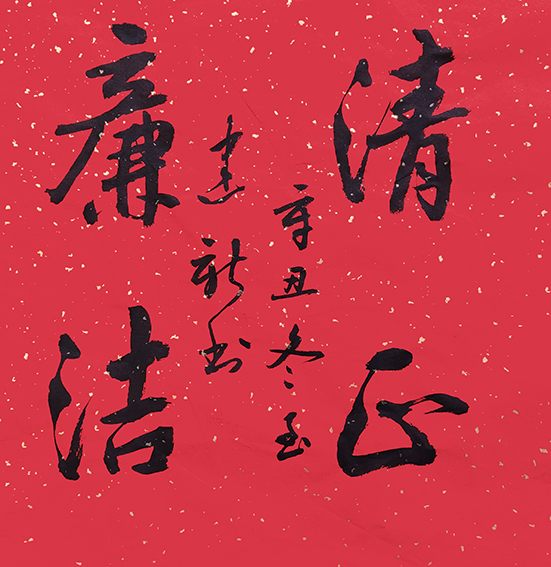 清正
辛丑冬至
建新书
廉洁